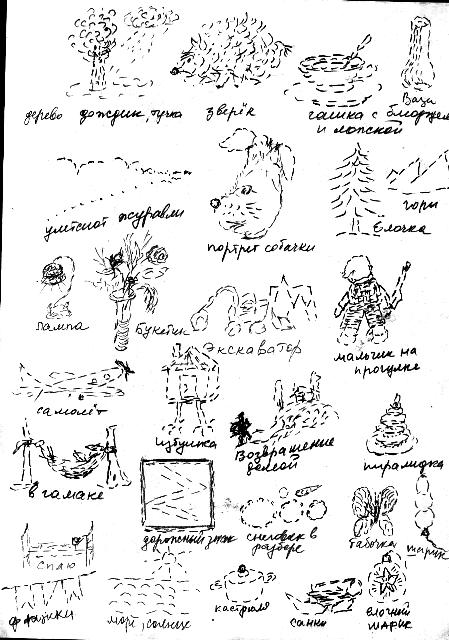 дерево
дождик, тучка
зверёк
чашка с блюдцем
и ложкой
Ваза
улетают журавли
портрет собачки
Ёлочка
горы
лампа
букетик
Экскаватор
мальчик на
прогулке
самолёт
избушка
Возвращение
домой
пирамидка
в гамаке
дорожный знак
снеговик в
разборе
бабочка
шарик
спаю
флажки
море, солнце
кастрюля
санки
ёлочный
шарик